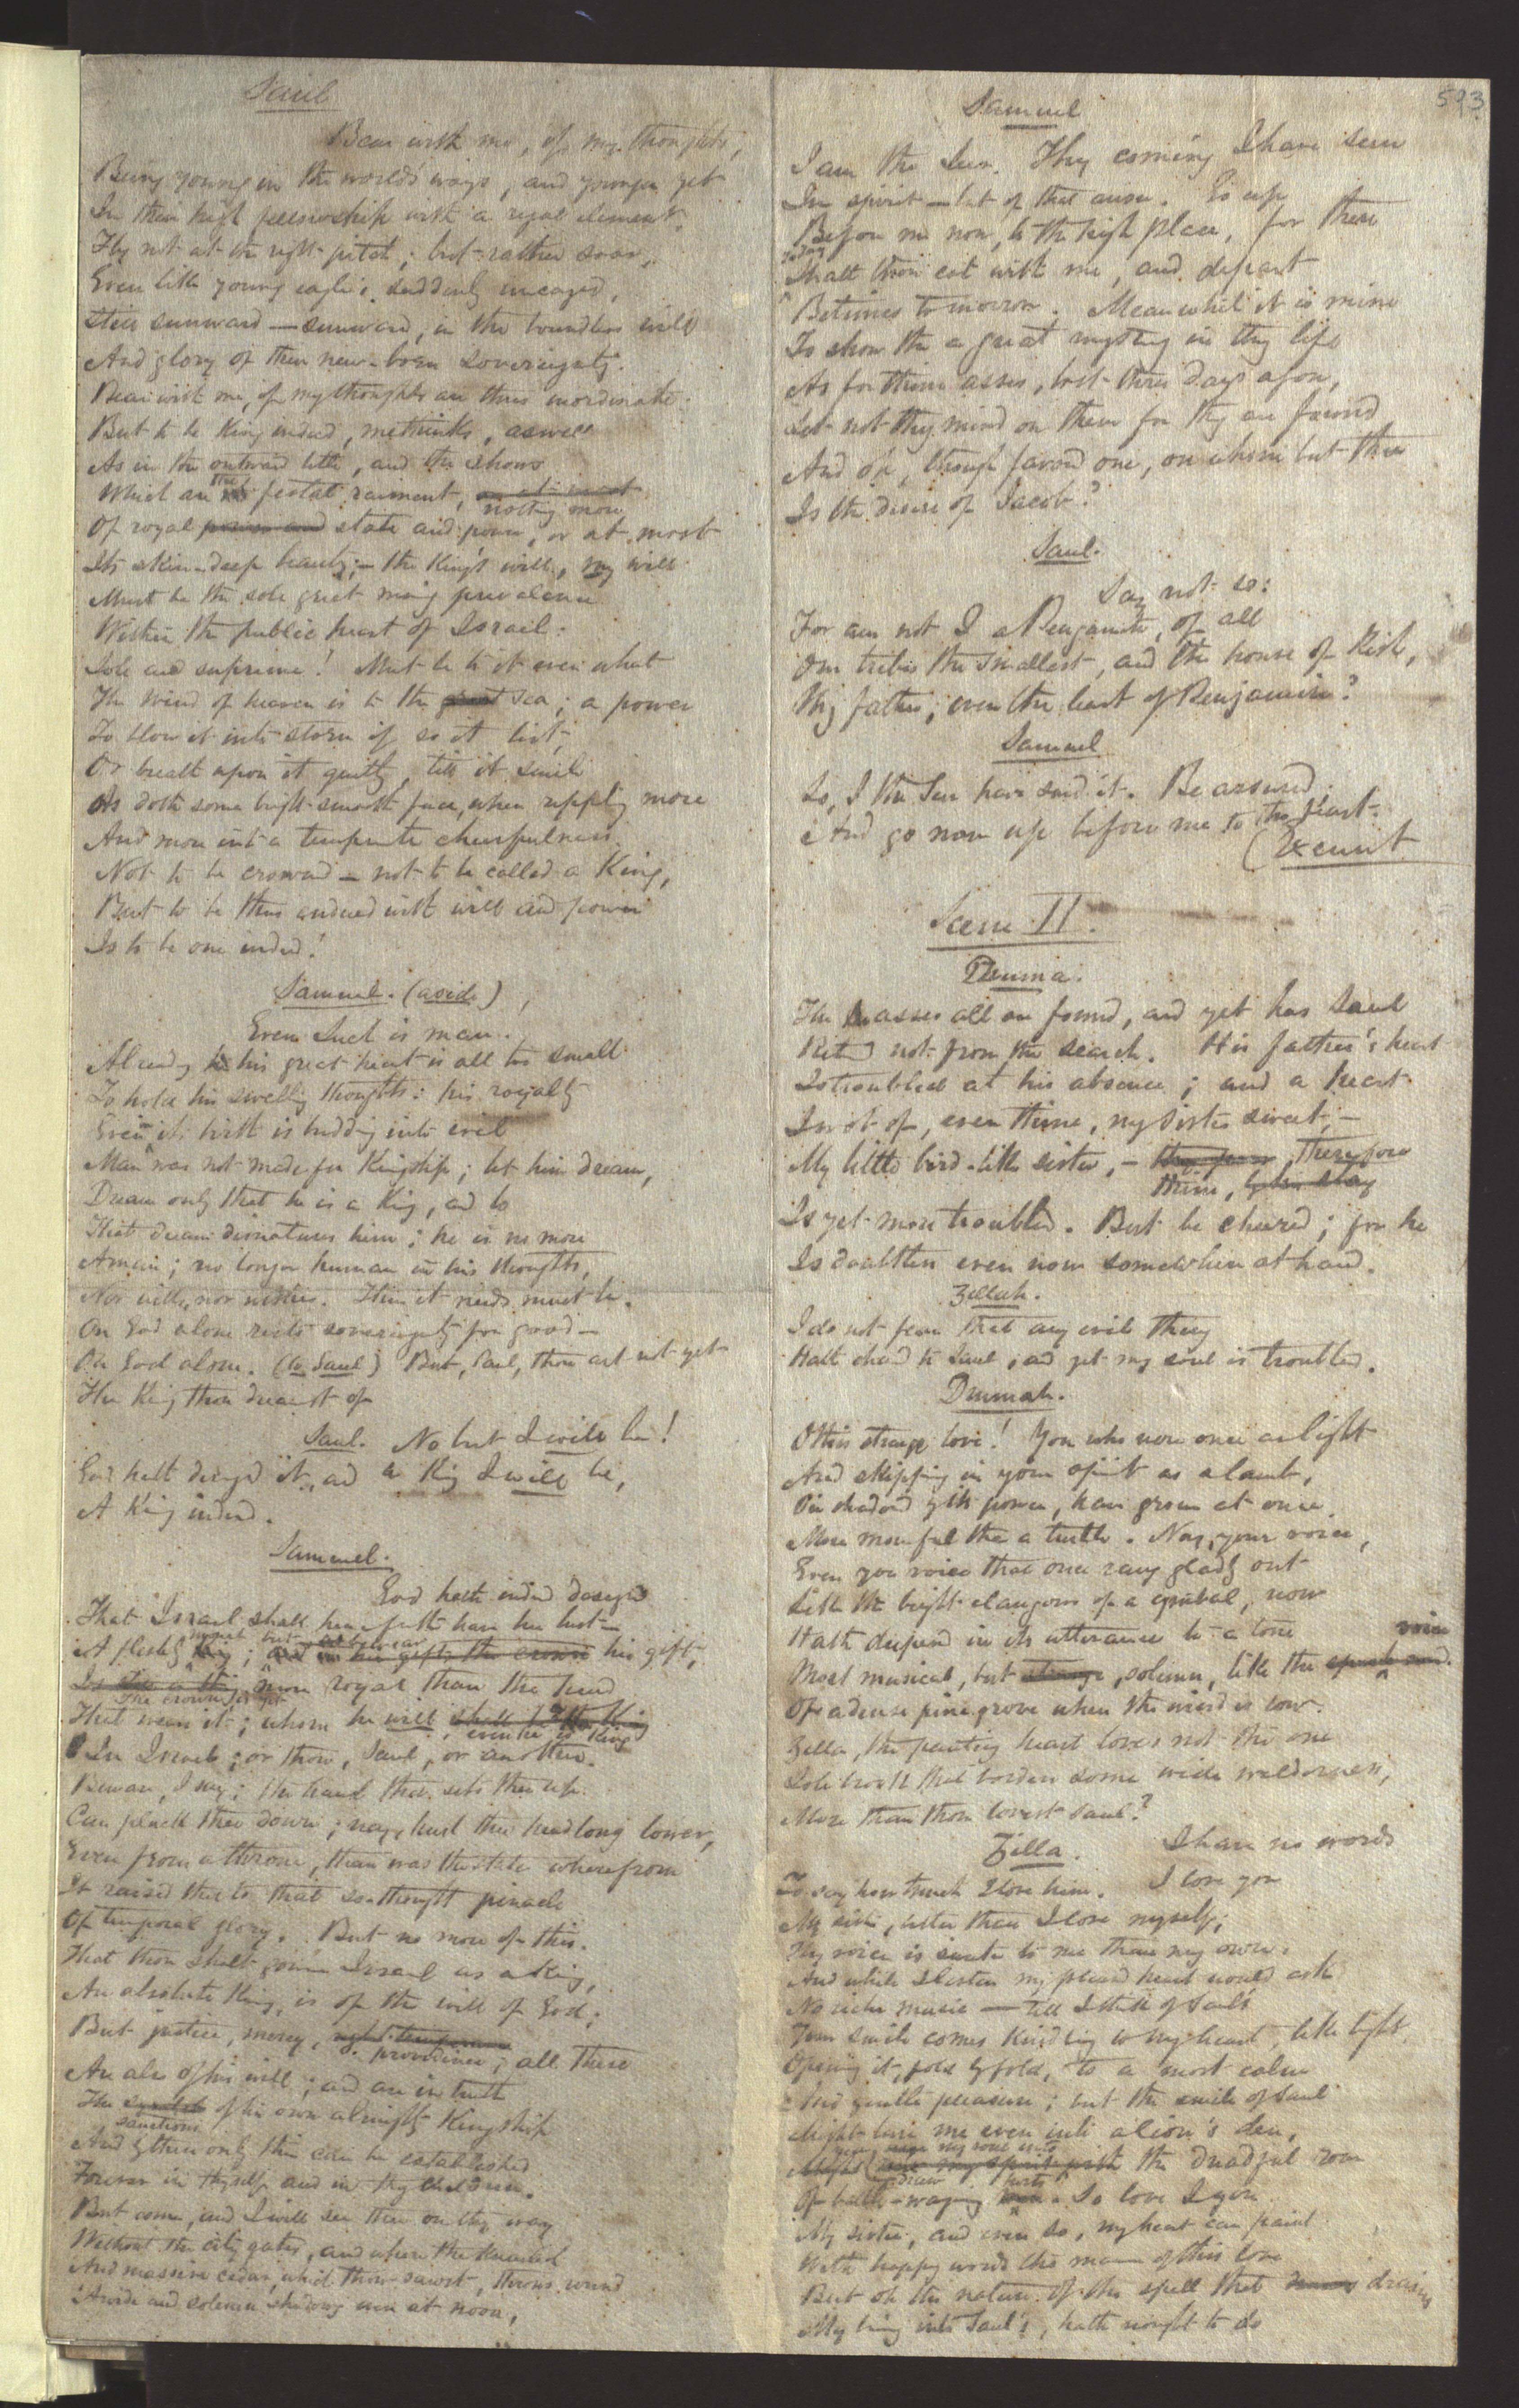 Saul
Bear with me, if my thoughts,
Being young in the world's ways, and younger yet
In their high fellowship with a regal element,
Fly not at the right pitch; but rather soar,
Even like young eagles suddenly uncaged,
Still sunward — sunward, in the boundless will
And glory of their new-born Sovereignty.
Bear with me, if my thoughts are thus inordinate.
But to be King indeed, methinks, as well
As in the outward title, and the shows
Which are the festal raiment, nothing more
Of royal power and state and power, or at most
Its skin-deep beauty; — the King's will, my will
Must be the sole great moving prevalence
Within the public heart of Israel:
Sole and supreme! Must be to it even what
The Wind of heaven is to the great sea; a power
To blow it into storm if so it list,
Or breath upon it gently, till it smile
As doth some bright smooth face, when rippling more
And more into a temperate cheerfulness.
Not to be crowned — not to be called a King,
But to be thus endued with will and power
Is to be one indeed!
Samuel. (aside)
Even Such is man.
Already his great heart is all too small
To hold his swelling thoughts: his royalty
Even in its birth is budding into evil
Man was not made for Kingship; let him dream,
Dream only that he is a King, and lo
That dream disnatures him; he is no more
A man; no longer human in his thoughts,
Nor wills, nor wishes. Thus it needs must be.
On God alone rests sovereignty for good —
On God alone. (to Saul) But, Saul, thou art not yet
The King thou dreamest of
Saul. No but I will be!
God hath designed it, and a King I will be,
A King indeed.
Samuel.
God hath indeed designed
That Israel shall henceforth have her lust
A fleshly King; his gift,
The crown, is more royal than the head
That wears it; whom he will, even he is King
In Israel; or thou, Saul, or another.
Beware, I say; the hand that sets thee up
Can pluck thee down; nay, hurl thee headlong lower,
Even from a throne, than was the state wherefrom
It raised thee to that so-thought pinacle
Of temporal glory. But no more of this.
That thou shalt govern Israel as a King,
An absolute King, is of the will of God;
But justice, mercy, providence; all these
Are also of his will; and are in truth
The sanctions of his own almighty Kingship
And by them only thine can be established
Forever in thyself and in thy children.
But come, and I will see thee on thy way
Without the city gates, and where the
And massive cedar, which thou sawest, throws round
A wide and solemn shadow even at noon,
593
Samuel
I am the Seer. Thy coming I have seen
In spirit — but of that anon. Go up
Before me now, to the high place, for there
today
Shalt thou eat with me, and depart
Betimes tomorrow. Meanwhile it is mine
To show thee a great mystery in thy life
As for thine asses, lost three days agon,
Set not thy mind on them for they are found
And oh, though favored one, on whom but thee
Is the desire of Jacob?
Saul.
Say not so:
For am not I a Benjamite, of all
Our tribes the smallest, and the house of Kish,
My father, even the least of Benjamin?
Samuel
Lo, I the Seer have said it. Be assured,
And go now up before me to the feast.
(Exeunt
Scene II.
Druma.
The asses all are found, and yet has Saul
Retd not from the search. His father's heart
Is troubled at his absence; and a heart
I wot of, even thine, my sister sweet, —
My little bird-like sister, — therefore
thine,
Is yet more troubled. But be cheered; for he
Is doubtless even now somewhere at hand.
Zillah.
I do not fear that any evil thing
Hath chanced to Saul, and yet my soul is troubled.
Drumah.
O this strange love! You who were once as light
And skipping in your spirit as a lamb,
O'ershadowed by its power, have grown at once
More mournful than a turtle. Nay, your voice,
Even your voice that once rang gladly out
Like the bright clangours of a cymbal, now
Hath deepened in its utterance to a tone
Most musical, but strange, solemn, like the voice
Of a dense pine grove when the wind is low.
Zilla, the panting heart loves not the one
Sole brook that borders some wide wilderness,
More than thou lovest Saul?
Zilla. I have no words
To say how much I love him. I love you
My sister, better than I love myself;
Thy voice is sweeter to me than my own.
And while I listen my pleased heart would ask
No richer music — till I think of Saul's
Your smile comes kindling to my heart, like light,
Opening it, fold by fold, to a most calm
And gentle pleasure; but the smile of Saul
Might lure me even into a lion's den,
the dreadful roar
Of battle-waging hosts. So love I you
My sister, and even so, my heart can paint
With happy words the manner of this love
But oh the nature of the spell that draws
My being into Saul's, hath nought to do